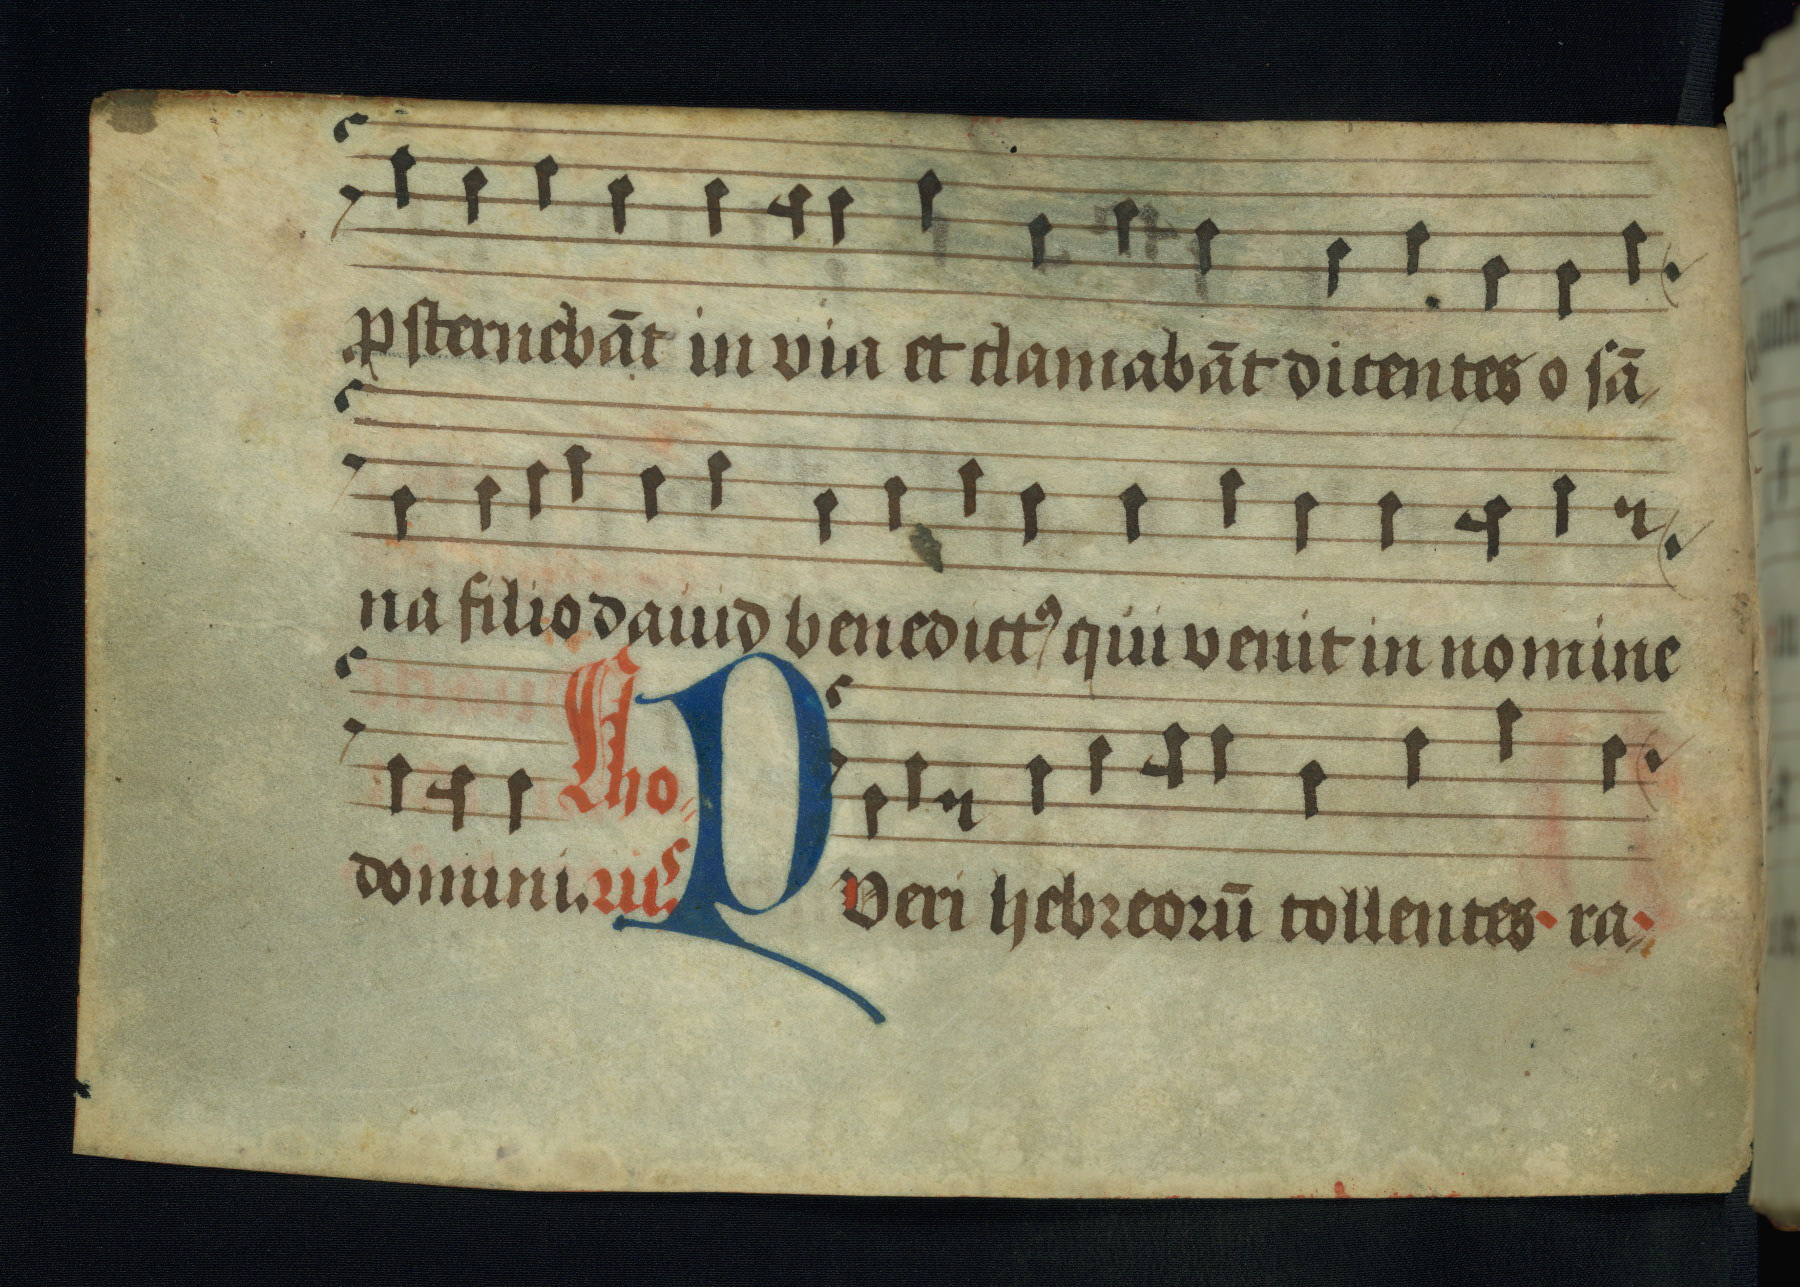 ꝓsternebāt in via et clamabāt dicentes o sā
na filio dauid benedictꝰ qui venit in nomine
domini. Cho
rus P Veri hebreorū tollentes · ra